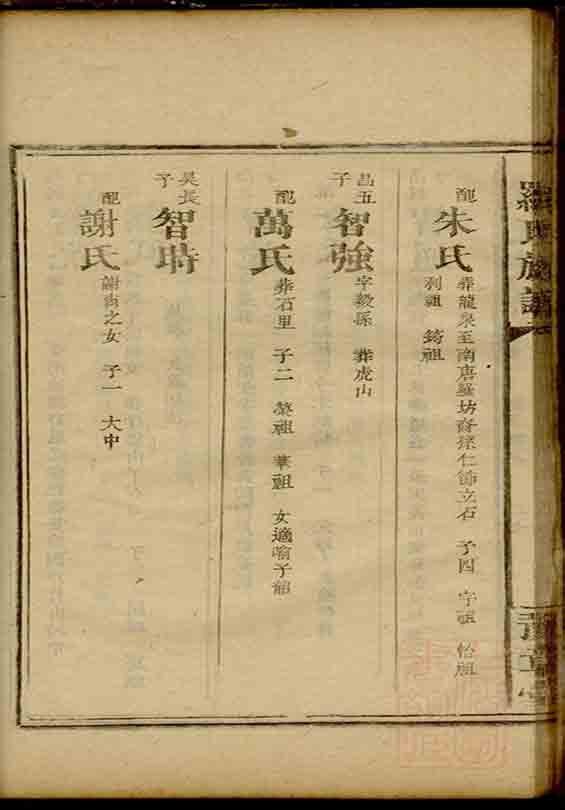 羅氏族譜
豫章堂
配 朱氏 葬龍泉至南唐 坊裔孫仁 立石 子四 字祖 怡祖
利祖 錡祖
昌五子 智強 字毅孫 葬虎山
配 萬氏 葬石里 子二 榮祖 華祖 女適喻子韶
昊長子 智時
配 謝氏 謝 之女 子一 大中